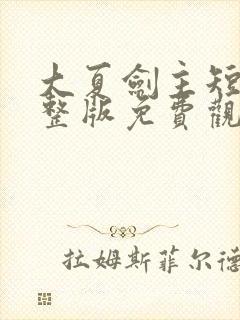 大夏劍主短
整版免費觀
拉姆斯菲尔德